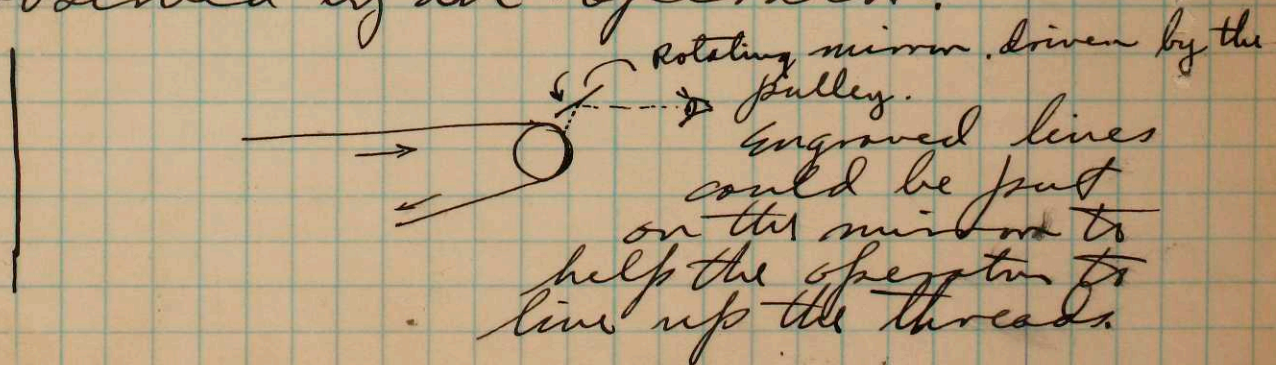 by an operator.
Rotating mirror. driven by the
pulley.
Engraved lines
could be put
on the mirror to
help the operator to
line up the threads.